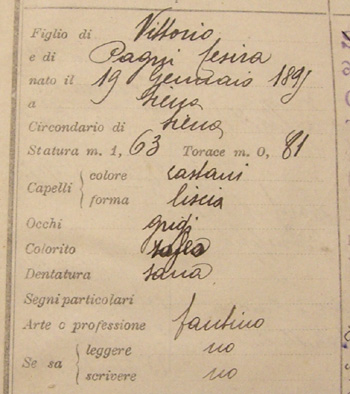 Figlio di Vittorio
e di Pagni Cesira
nato il 19 Gennaio 1895
a Siena
Circondario di Siena
Statura m. 1, 63 Torace m. 0, 81
Capelli colore castani
forma liscia
Occhi grigi
Colorito
Dentatura sana
Segni particolari
Arte o professione fantino
Se sa leggere no
scrivere no